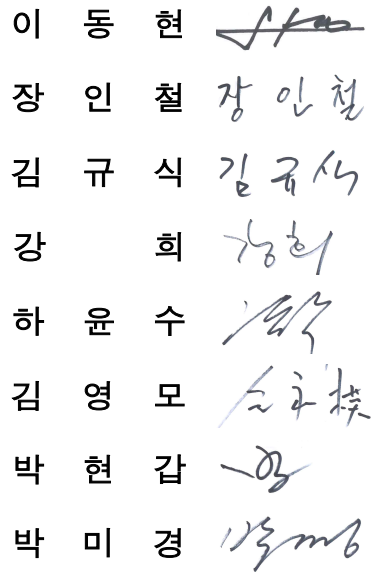 이 동 현
장 인 철 장 인 철
김 규 식 김 규 식
강 희 강희
하 윤 수
김 영 모
박 현 갑
박 미 경